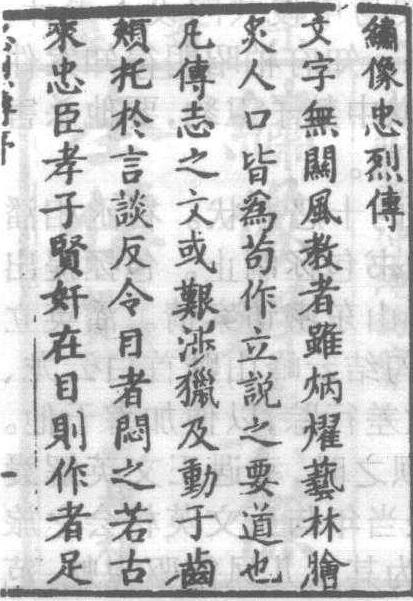 繡像忠烈傳
文字無關風教者雖炳燿藝林膾
炙人口皆為苟作立說之要道也
凡傳志之文或艱涉獵及動于齒
頰托於言談反令目者悶之若古
來忠臣孝子賢奸在目則作者足
忠烈傳序